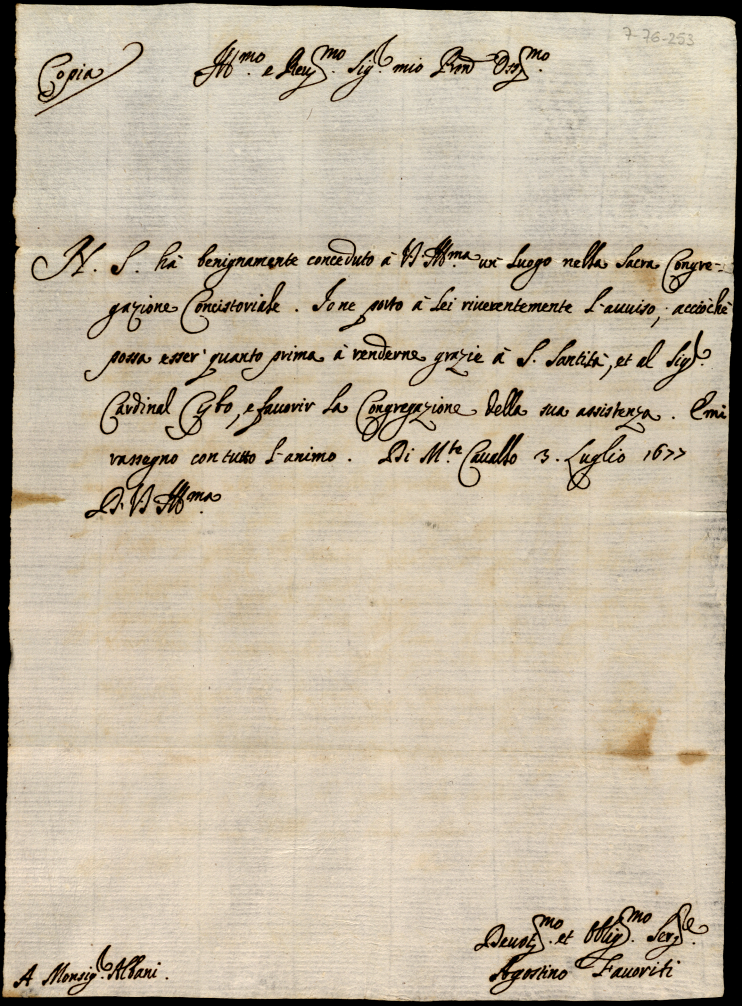 7-76-253
Copia
Ill.mo e Rev.mo Sig.r mio Pron Oss.mo
N. S. hà benignamente conceduto à V. Ill.ma un luogo nella Sacra Congre-
gazione Concistoriale. Io ne porto à lei riverentemente l'auuiso, acciòche
possa esser' quanto prima à renderne grazie à S. Santità, et al Sig.r
Cardinal Cybo, e fauorir la Congregazione della sua assistenza. E mi
rassegno con tutto l'animo. Di M.te Cauallo 3. Luglio 1677
Di V. Ill.ma
Deuot.mo et Oblig.mo Ser.re
Agostino Fauoriti
A Monsig.r Albani.